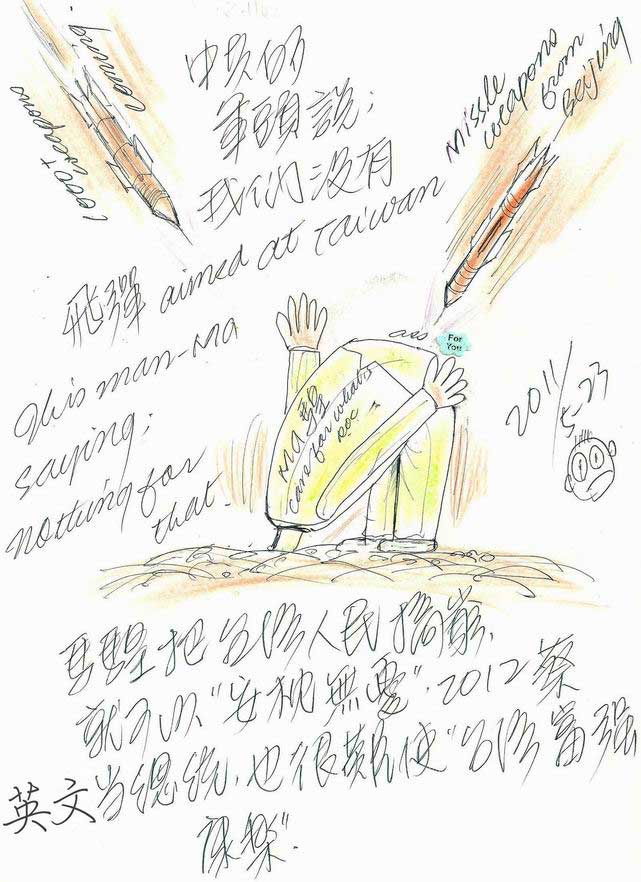 1000+
weapons
coming
中共的
軍頭說;
我们没有
飛彈 aimed at Taiwan
Missle
weapons
from
Beijing
This man-Ma
saying;
nothing for
that.
ass
For
You
Ma
care for what is
ROC
2011/5-23
把台湾人民搞
就可以"安枕無憂". 2012 蔡
英文当總統, 也很難使"台湾富强
康樂".